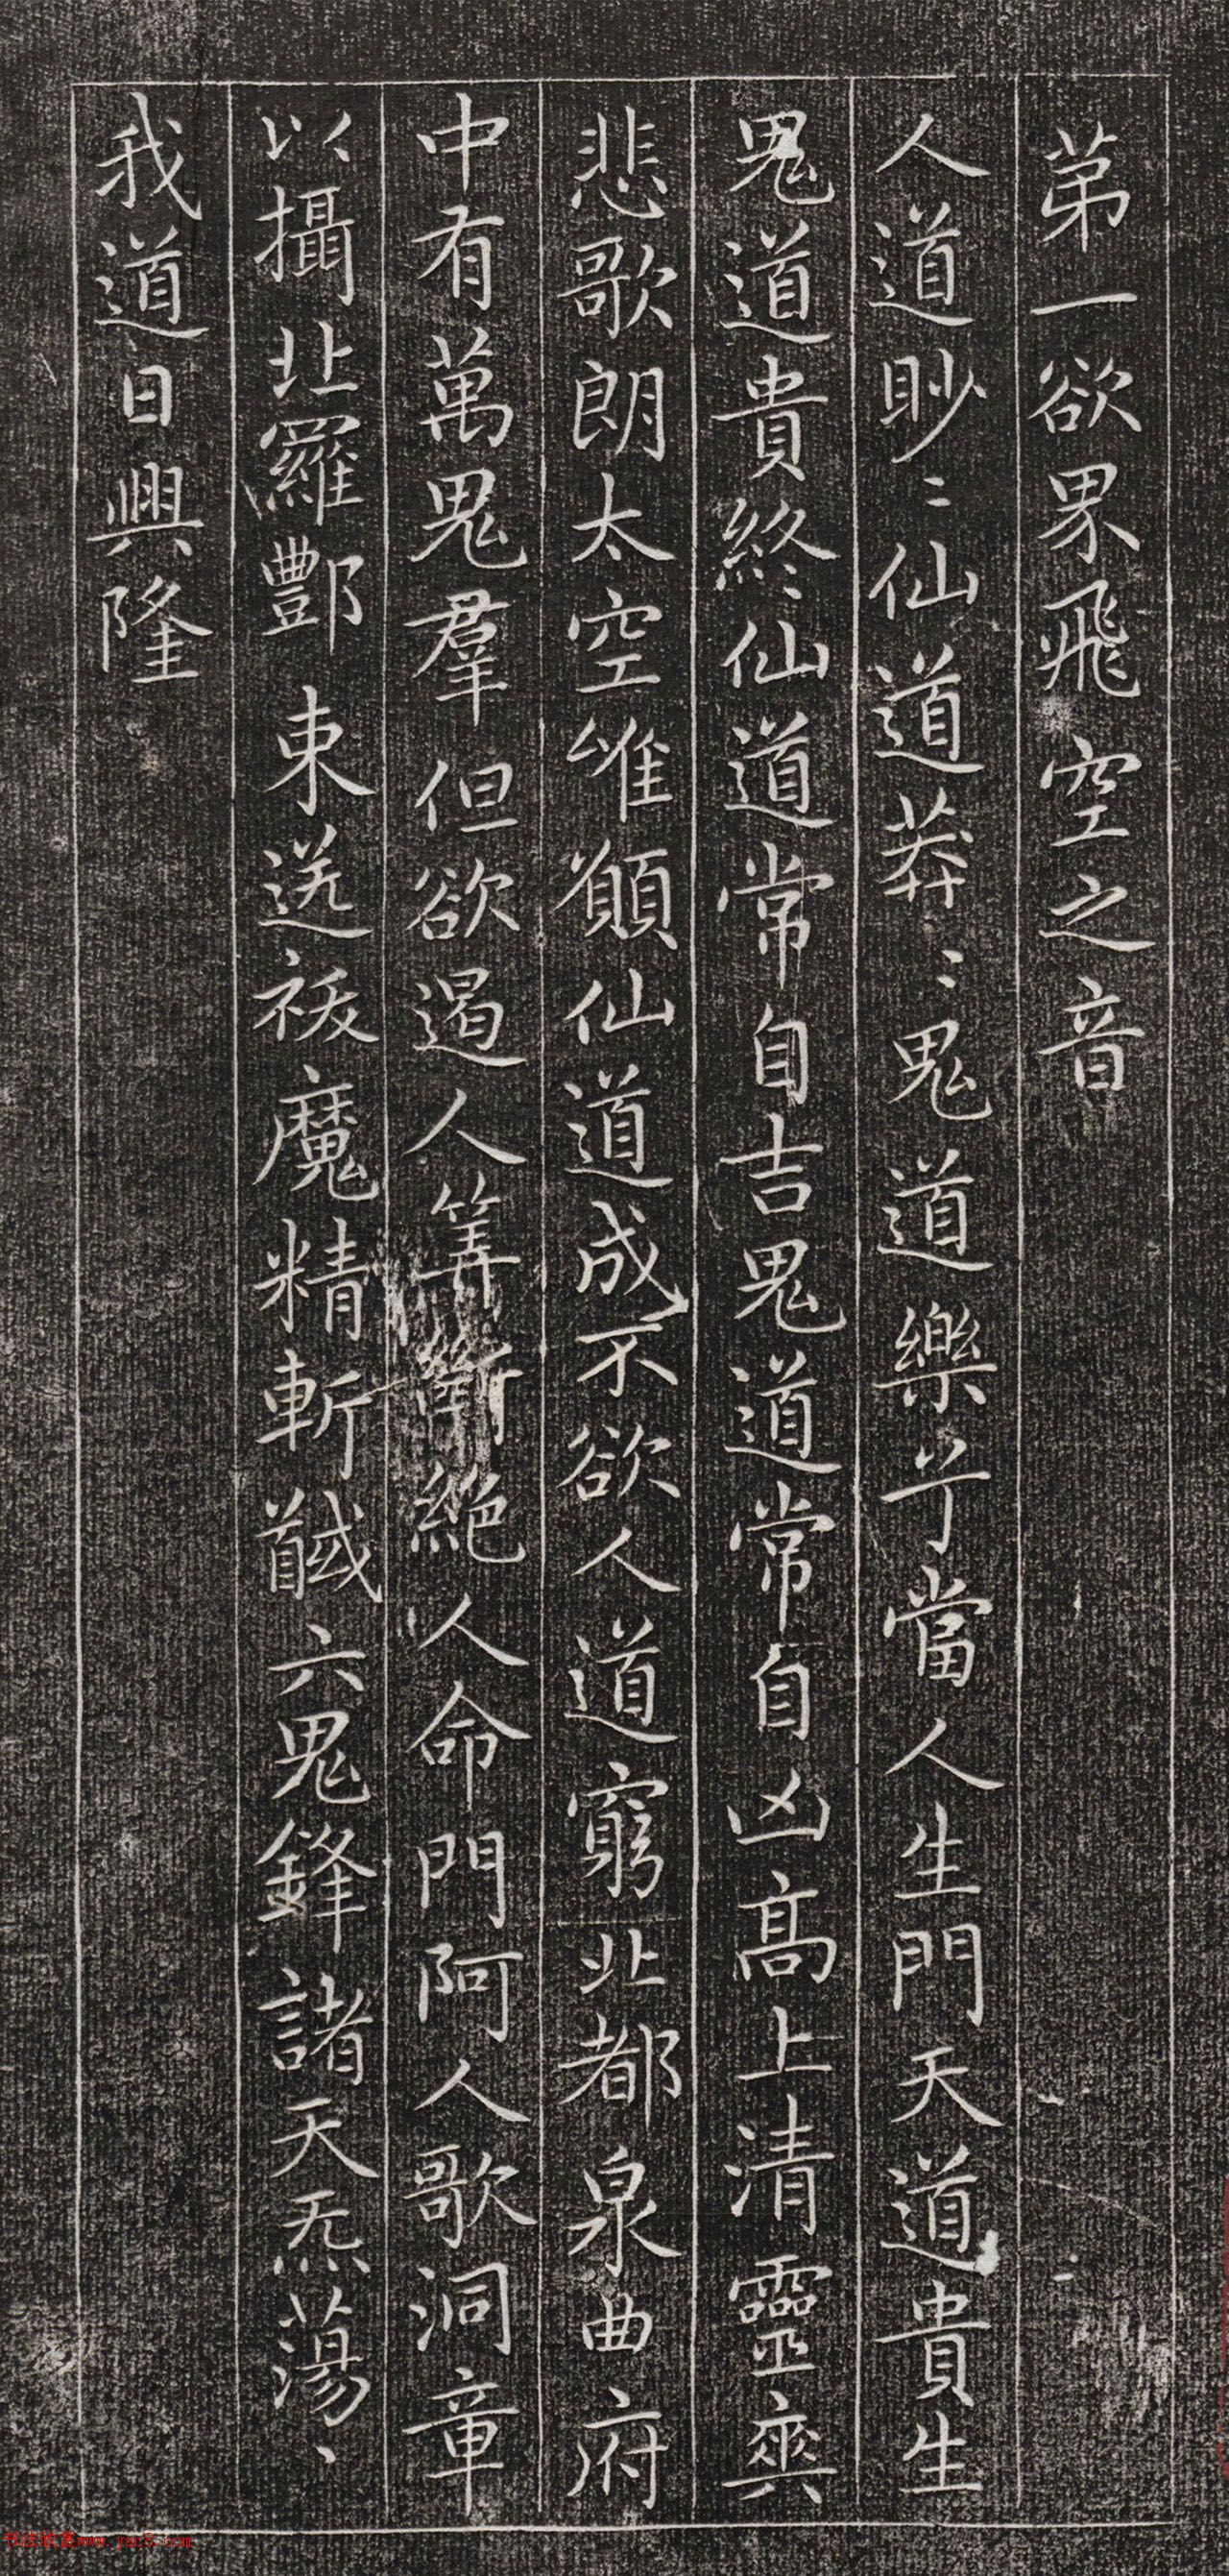 苐一欲界飛空之音
人道眇〻仙道莽〻鬼道樂兮當人生門天道貴生
鬼道貴終仙道常自吉鬼道常自凶高上清靈爽
悲歌朗太空唯願仙道成不欲人道窮北都泉曲府
中有萬鬼羣但欲遏人筭斷絕人命門阿人歌洞章
以攝北羅酆束送祅魔精斬馘六鬼鋒諸天炁蕩〻
我道日興隆
书法欣赏www.yac8.com